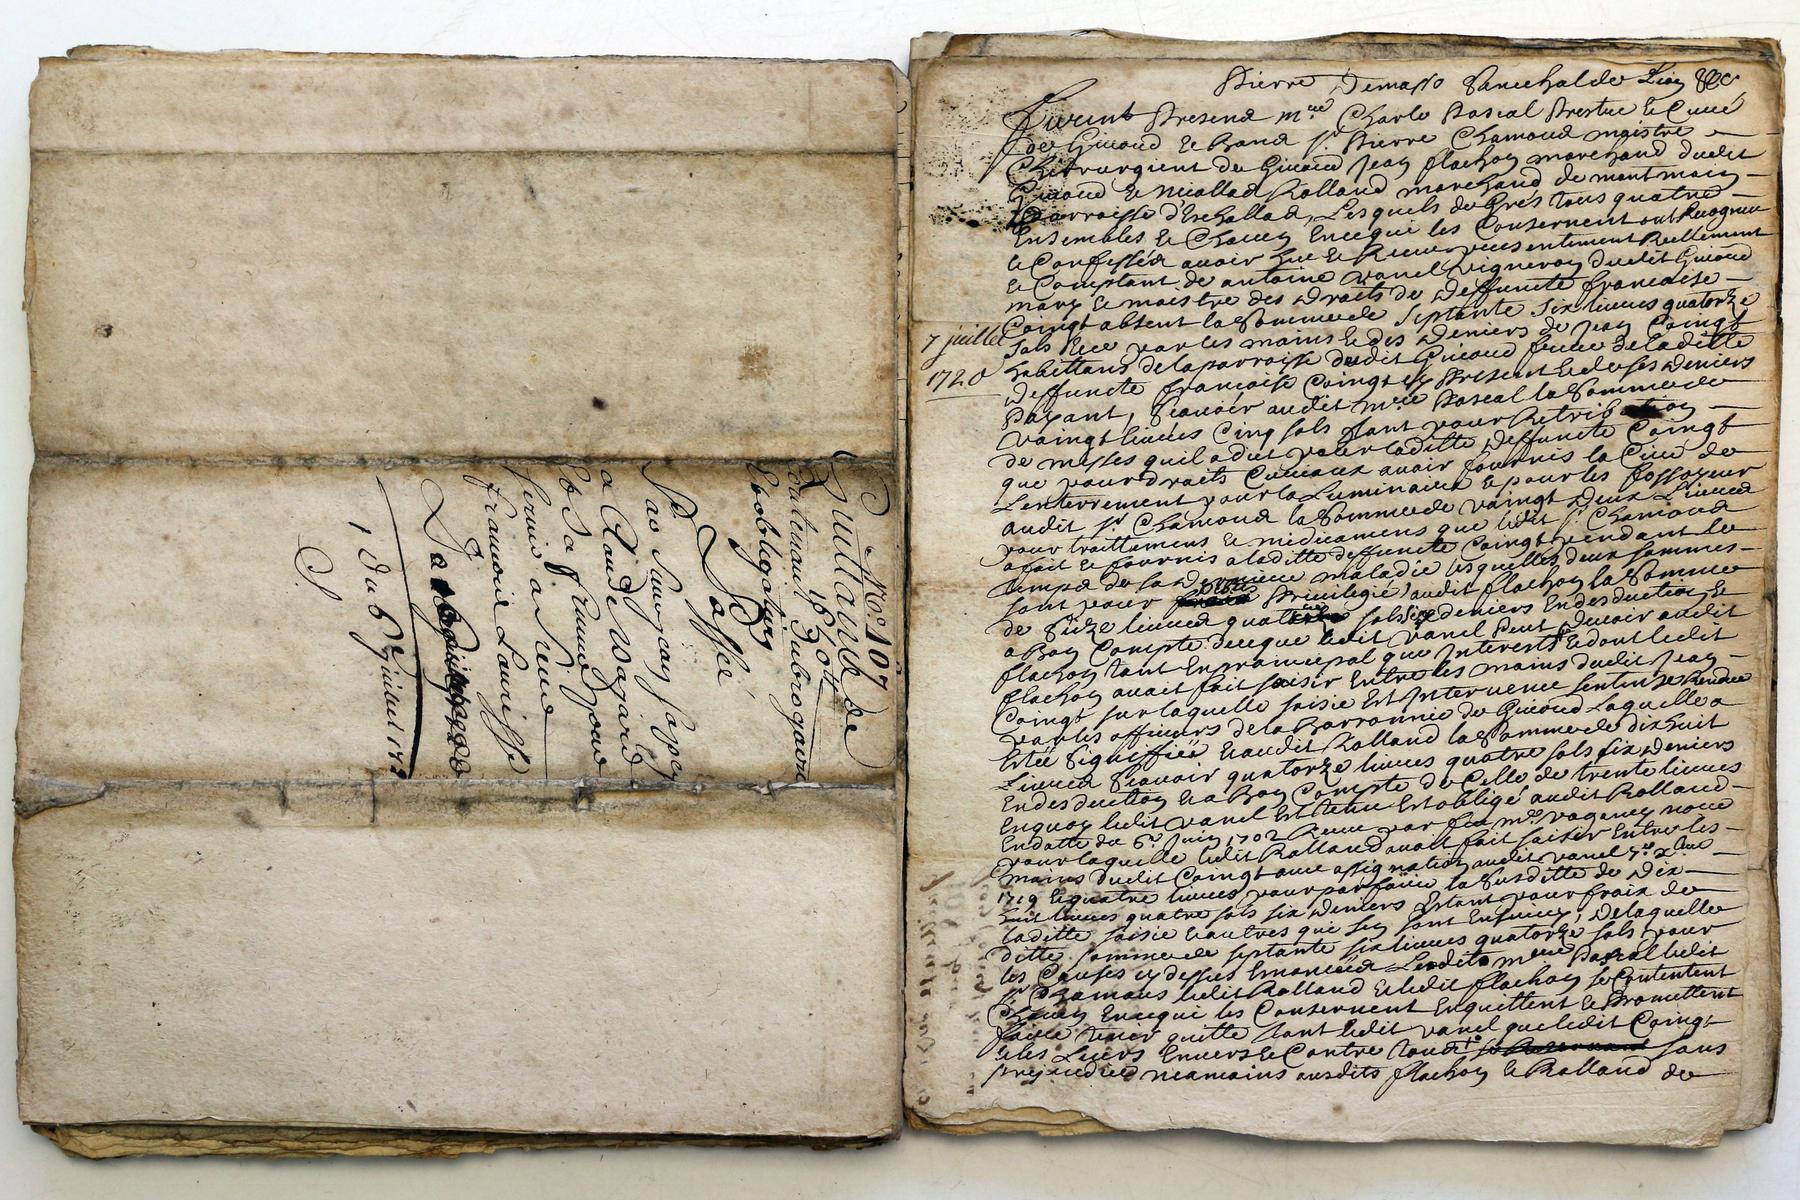 No. 107
Quittance de
16 lt
subrogatoire
Et obligatoire
Passé
Par Sieur Jean
a Claude
Et Sa femme pour
Servir a Sieur
francoise
Du 6e juillet 172
Pierre Demasso Senechal de Lion &c
Furent Presend mre Charle Pascal Prestre Et Curé
de Giuaud Le Band sr. Pierre Chamoud maistre
Chirurgient de Giuaud Jean flachon marchand dudit
Giuaud Et Rolland marchand de montmain
Parroisse d'Eschallad, Lesquels de Gres tous quatre
Ensembles Et Chacun Encequi les Consernent ont Recogneu
Et Confessér auoir heu Et Receu presentement Reellement
Et Comptant de antoine vanel vigneron dudit Giuaud
mary Et maistre des Droits de deffuncte francoise
Coingt absent la Somme de Septante Six liures quatorze
7 juillet
1720
sols Et ce par les mains Et des Deniers de Jean Coingt
habittans de la parroisse dudit Giuaud frere de laditte
deffuncte francoise Coingt icy Present Et de ses Deniers
Payant, Scauoir audit mre Pascal la Somme de
vaingt liures Cinq sols tant pour Retribution
de messes quil a dit pour laditte deffuncte Coingt
que pour droits Curiaux auoir fournis la Ciré de
Lenterrement pour la Luminaire Et pour les fossoyeur
audit sr Chamoud la Somme de vaingt Deux Liures
pour traittemens Et medicamens que ledit sr. Chamoud
a fait Et fournis a laditte deffuncte Coingt pendant le
temps de sa Derniere maladie lesquelles deux sommes
sont pour debtes Privilegié, audit flachon la Somme
de Seize liures quatre sols six deniers En desduction Et
a Bon Compte de ceque ledit vanel Peut Devoir audit
flachon tant En principal que Interests Et dont ledit
flachon auait fait saisir Entre les mains dudit Jean
Coingt sur laquelle saisie Est Intervenue sentense Rendue
par les officiers de la Barronnie de Giuaud Laquelle a
Esté Signiffiée Et audit Rolland la Somme de dix huit
Liures Scauoir quatorze liures quatre sols six Deniers
En desduction Et a Bon Compte de Celle de trente liures
En quoy ledit vanel Est tenu Et obligé audit Rolland
En datte du 6e. Juin 1702 Receue par feu mre vaganay nore
pour laquelle ledit Rolland auait fait saisir Entre les
mains dudit Coingt auec assignation audit vanel
1719 Et quatre liures pour parfaire la Susditte de Dix
huit liures quatre sols six Deniers Estant pour fraix de
laditte saisie Et autres qui sen sont Ensuiuy, de laquelle
ditte somme de septante six liures quatorze sols pour
les Causes cy dessus Enoncées Lesdits mre Pascal ledit
sr Chamoud ledit Rolland Et ledit flachon se Contentent
Chacun Encequi les Consernent En quittent Et Promettent
faire tenir quitte tant ledit vanel que ledit Coingt
Et les Leurs Enuers Et Contre tous sans
prejudice neamoins ausdits flachon Et Rolland de